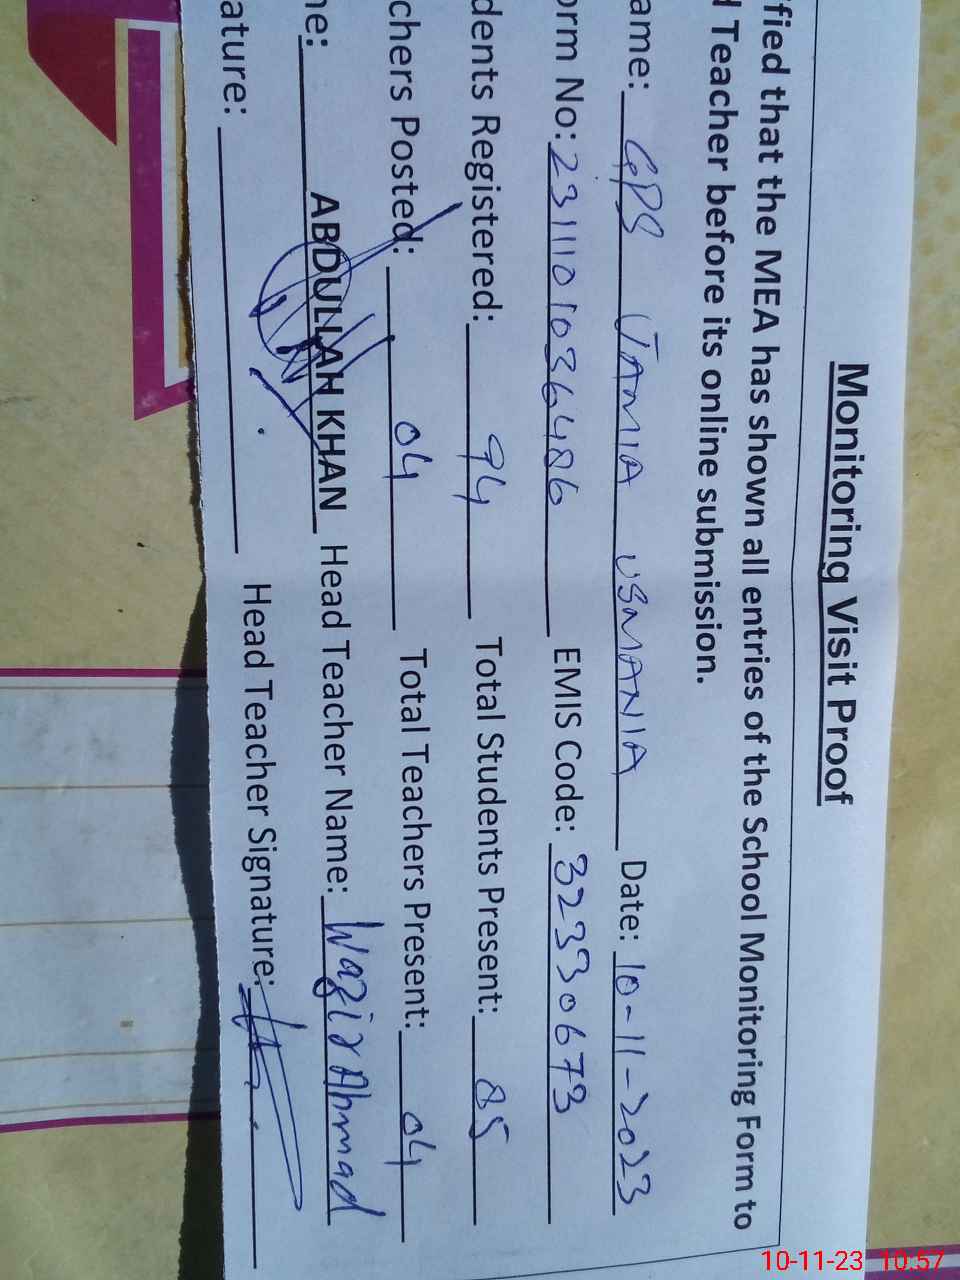 Monitoring Visit Proof
fied that the MEA has shown all entries of the School Monitoring Form to
d Teacher before its online submission.
ame: GPS JAMIA USMANIA Date: 10-11-2023
orm No: 2311101036486 EMIS Code: 32330673
dents Registered: 94 Total Students Present: 85
chers Posted: 04 Total Teachers Present: 04
ne: ABDULLAH KHAN Head Teacher Name: Wazir Ahmad
ature: Head Teacher Signature:
10-11-23 10:57